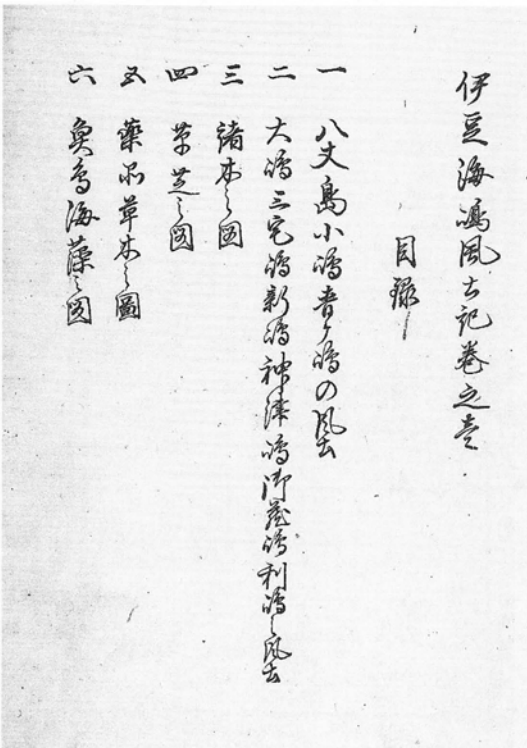 伊豆海嶋風土記巻之壱
目録
一 八丈島小嶋青ケ嶋の風土
二 大嶋三宅嶋新嶋神津嶋御蔵嶋利嶋之風土
三 諸木之図
四 草芝之図
五 薬品草木之圖
六 魚鳥海藻之図